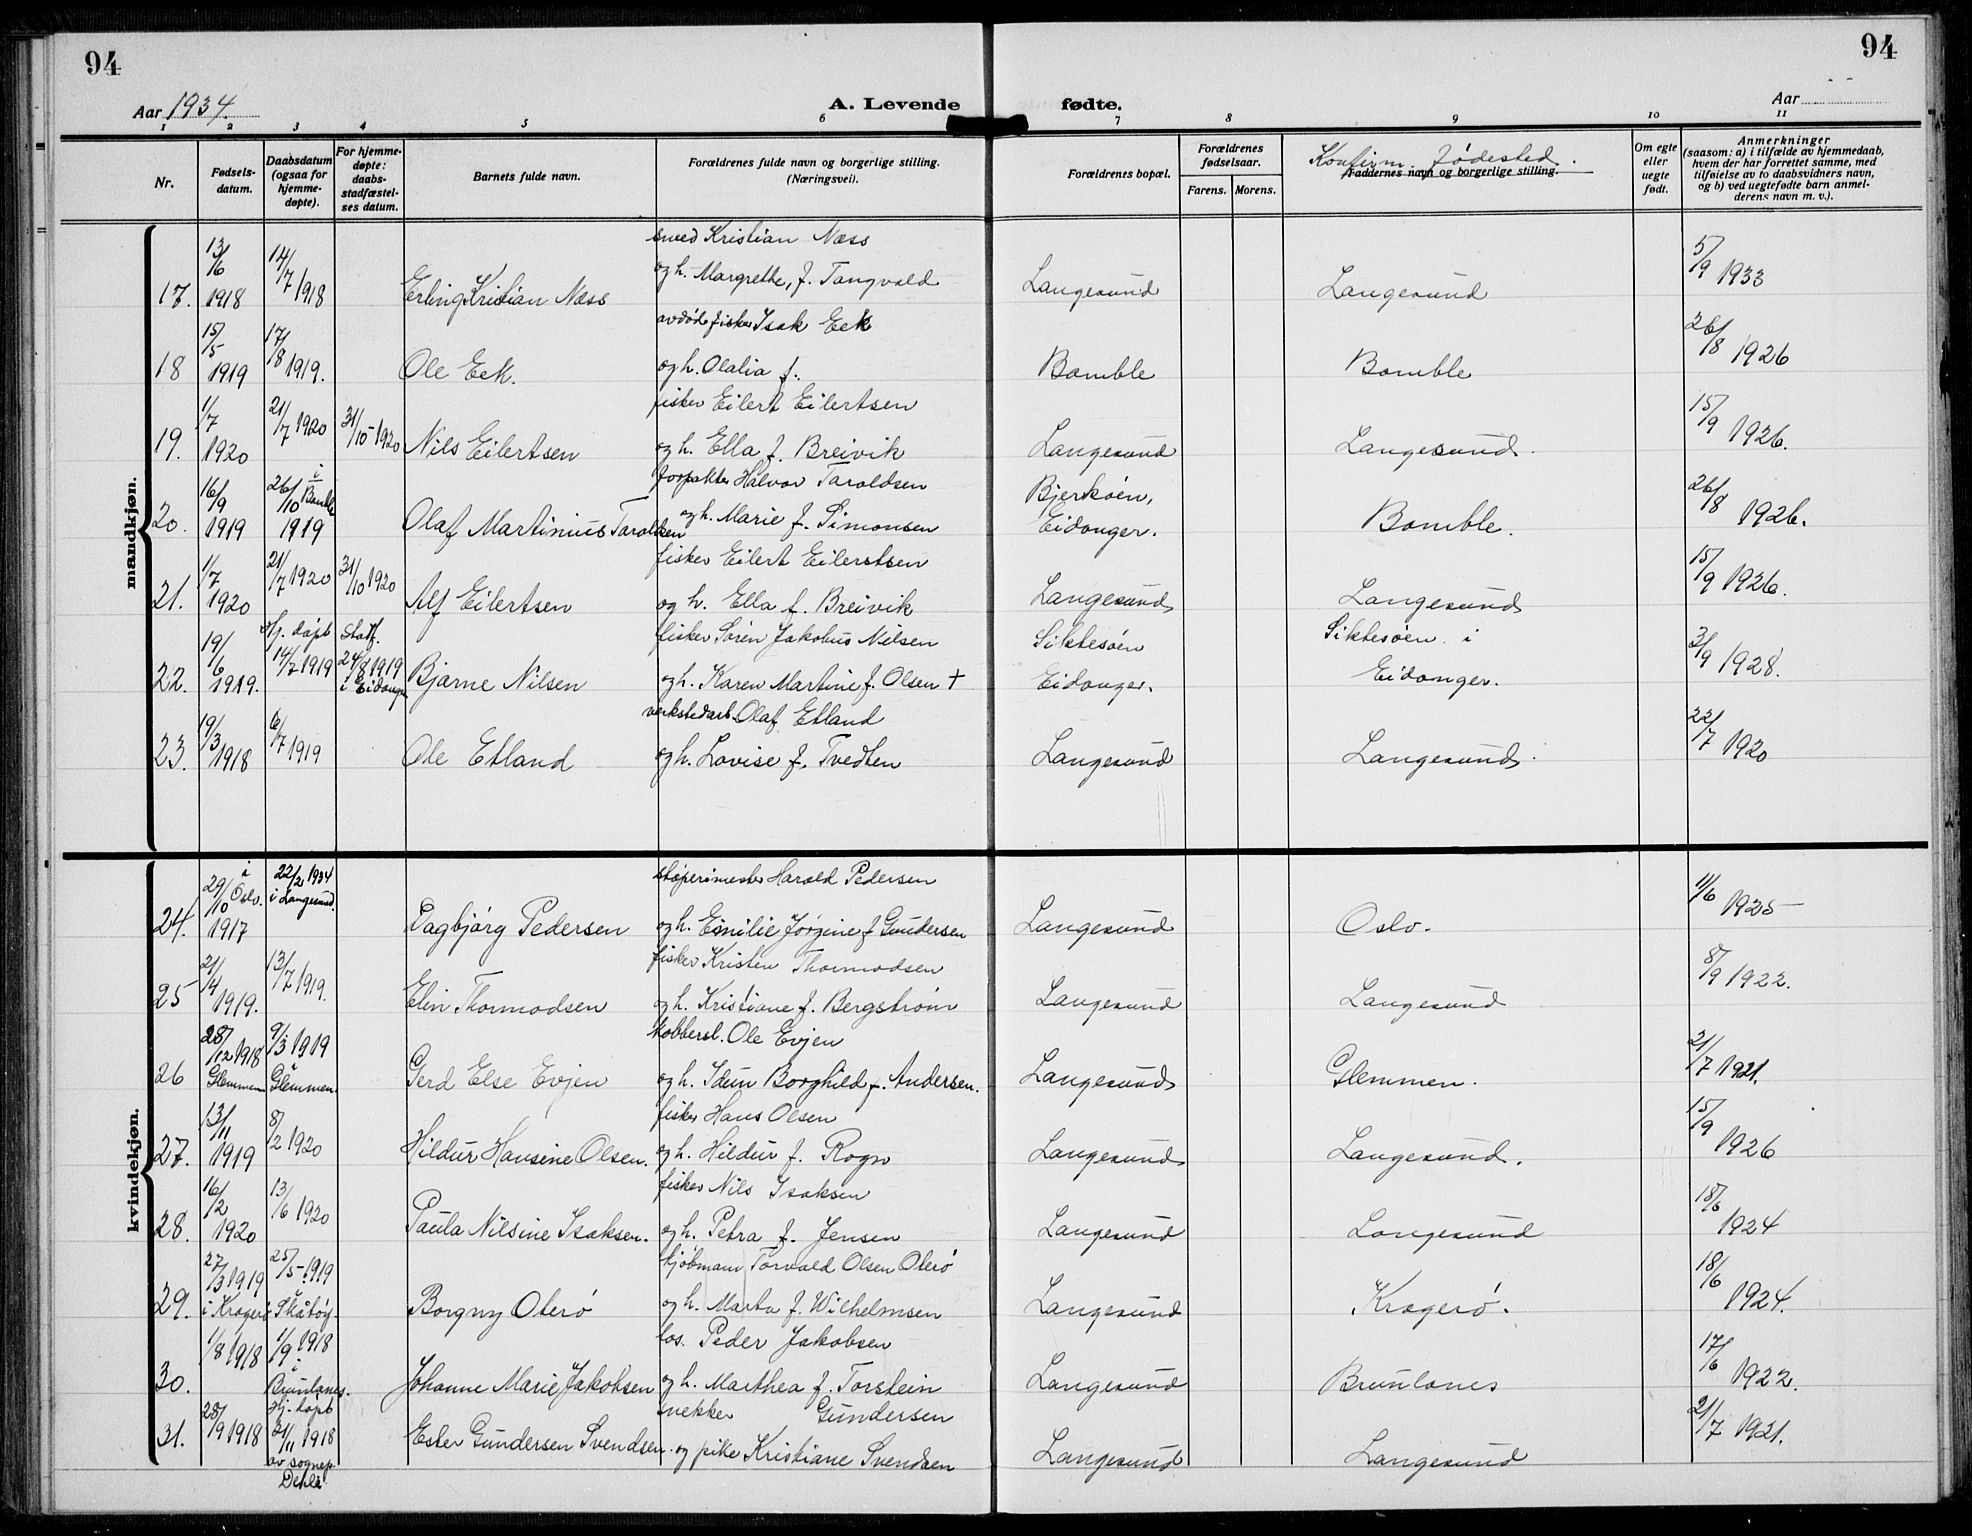 94
94
Aar 1934.
A. Levende fødte.
Aar
1 2 3 4 5 6 7 8 9 10 11
Nr.
Fødsels-
datum.
Daabsdatum
(ogsaa for
hjemme-
døpte).
For hjemme-
døpte:
daabs-
stadfæstel-
ses datum.
Barnets fulde navn.
Forældrenes fulde navn og borgerlige stilling.
(Næringsvei).
Forældrenes bopæl.
Forældrenes
fødselsaar.
Farens. Morens.
Konfirm. fødested.
Faddernes navn og borgerlige stilling.
Om egte
eller
uegte
født.
Anmerkninger
(saasom: a) i tilfælde av hjemmedaab,
hvem der har forrettet samme, med
tilføielse av to daabsvidners navn,
og b) ved uegtefødte barn anmel-
derens navn m. v.).
mandkjøn.
smed Kristian Næss
17. 13/6 1918 14/7 1918 Erling Kristian Næss og h. Margrethe, f. Tangvald Langesund Langesund 5/9 1933
avdøde fisker Isak Eek
18 15/5 1919 17/8 1919. Ole Eek. og h. Olalia f. Bamble Bamble 26/8 1926
fisker Eilert Eilertsen
19. 1/7 1920 21/7 1920 31/10-1920 Nils Eilertsen og h. Ella f. Breivik Langesund Langesund. 15/9 1926.
forpakter Halvor Taraldsen
20. 16/9 1919 26/10 i Bamble 1919 Olaf Martinius Taraldsen og h. Marie f. Simonsen Bjerkøen, Eidanger. Bamble. 26/8 1926.
fisker Eilert Eilerstsen
21. 1/7 1920 21/7 1920 31/10 1920 Alf Eilertsen og h. Ella f. Breivik Langesund Langesund 15/9 1926.
fisker Søren Jakobus Nilsen
22. 19/6 1919. Hj. døpt 14/7 1919 stadf. 24/8 1919 i Eidanger Bjarne Nilsen og h. Karen Martine f. Olsen + Siktesøen Eidanger. Siktesøen i Eidanger. 3/9 1928.
verkstedarb. Olaf Etland
23. 19/3 1918 6/7 1919 Ole Etland og h. Lovise f. Tvedten Langesund Langesund. 22/7 1920
kvindekjøn.
støperimester Harald Pedersen
24. 29/10 i Oslo. 1917 22/2 1934 i Langesund. Dagbjørg Pedersen og h. Emilie Jørgine f Gundersen Langesund Oslo. 11/6 1925
fisker Kristen Thormodsen
25 21/4 1919. 13/7 1919. Elin Thormodsen og h. Kristiane f. Bergstrøm Langesund Langesund 8/9 1922.
kobbersl. Ole Evjen
26 28/12 1918 Glemmen 9/3 1919 i Glemmen. Gerd Else Evjen og h. Idun Borghild f. Andersen. Langesund Glemmen. 21/7 1921.
fisker Hans Olsen
27. 13/11 1919 8/2 1920 Hildur Hansine Olsen. og h. Hildur f. Rogn Langesund Langesund. 15/9 1926
fisker Nils Isaksen
28. 16/2 1920 13/6 1920 Paula Nilsine Isaksen. og h. Petra f. Jensen Langesund Langesund 18/6 1924
kjøbmann Torvald Olsen Oterø
29. 27/3 1919 i Kragerø 25/5-1919 i Skåtøy. Borgny Oterø og h. Marta f. Wilhelmsen Langesund Kragerø. 18/6 1924.
los. Peder Jakobsen
30. 1/8 1918 1/9 1918 i Brunlanes. Johanne Marie Jakobsen og h. Marthea f. Torstein Langesund Brunlanes 17/6 1922.
snekker Gundersen
31. 28/9 1918 Hj. døpt 24/11 1918 av sognep. Dehli Ester Gundersen Svendsen. og pike Kristiane Svendsen Langesund Langesund 21/7 1921.